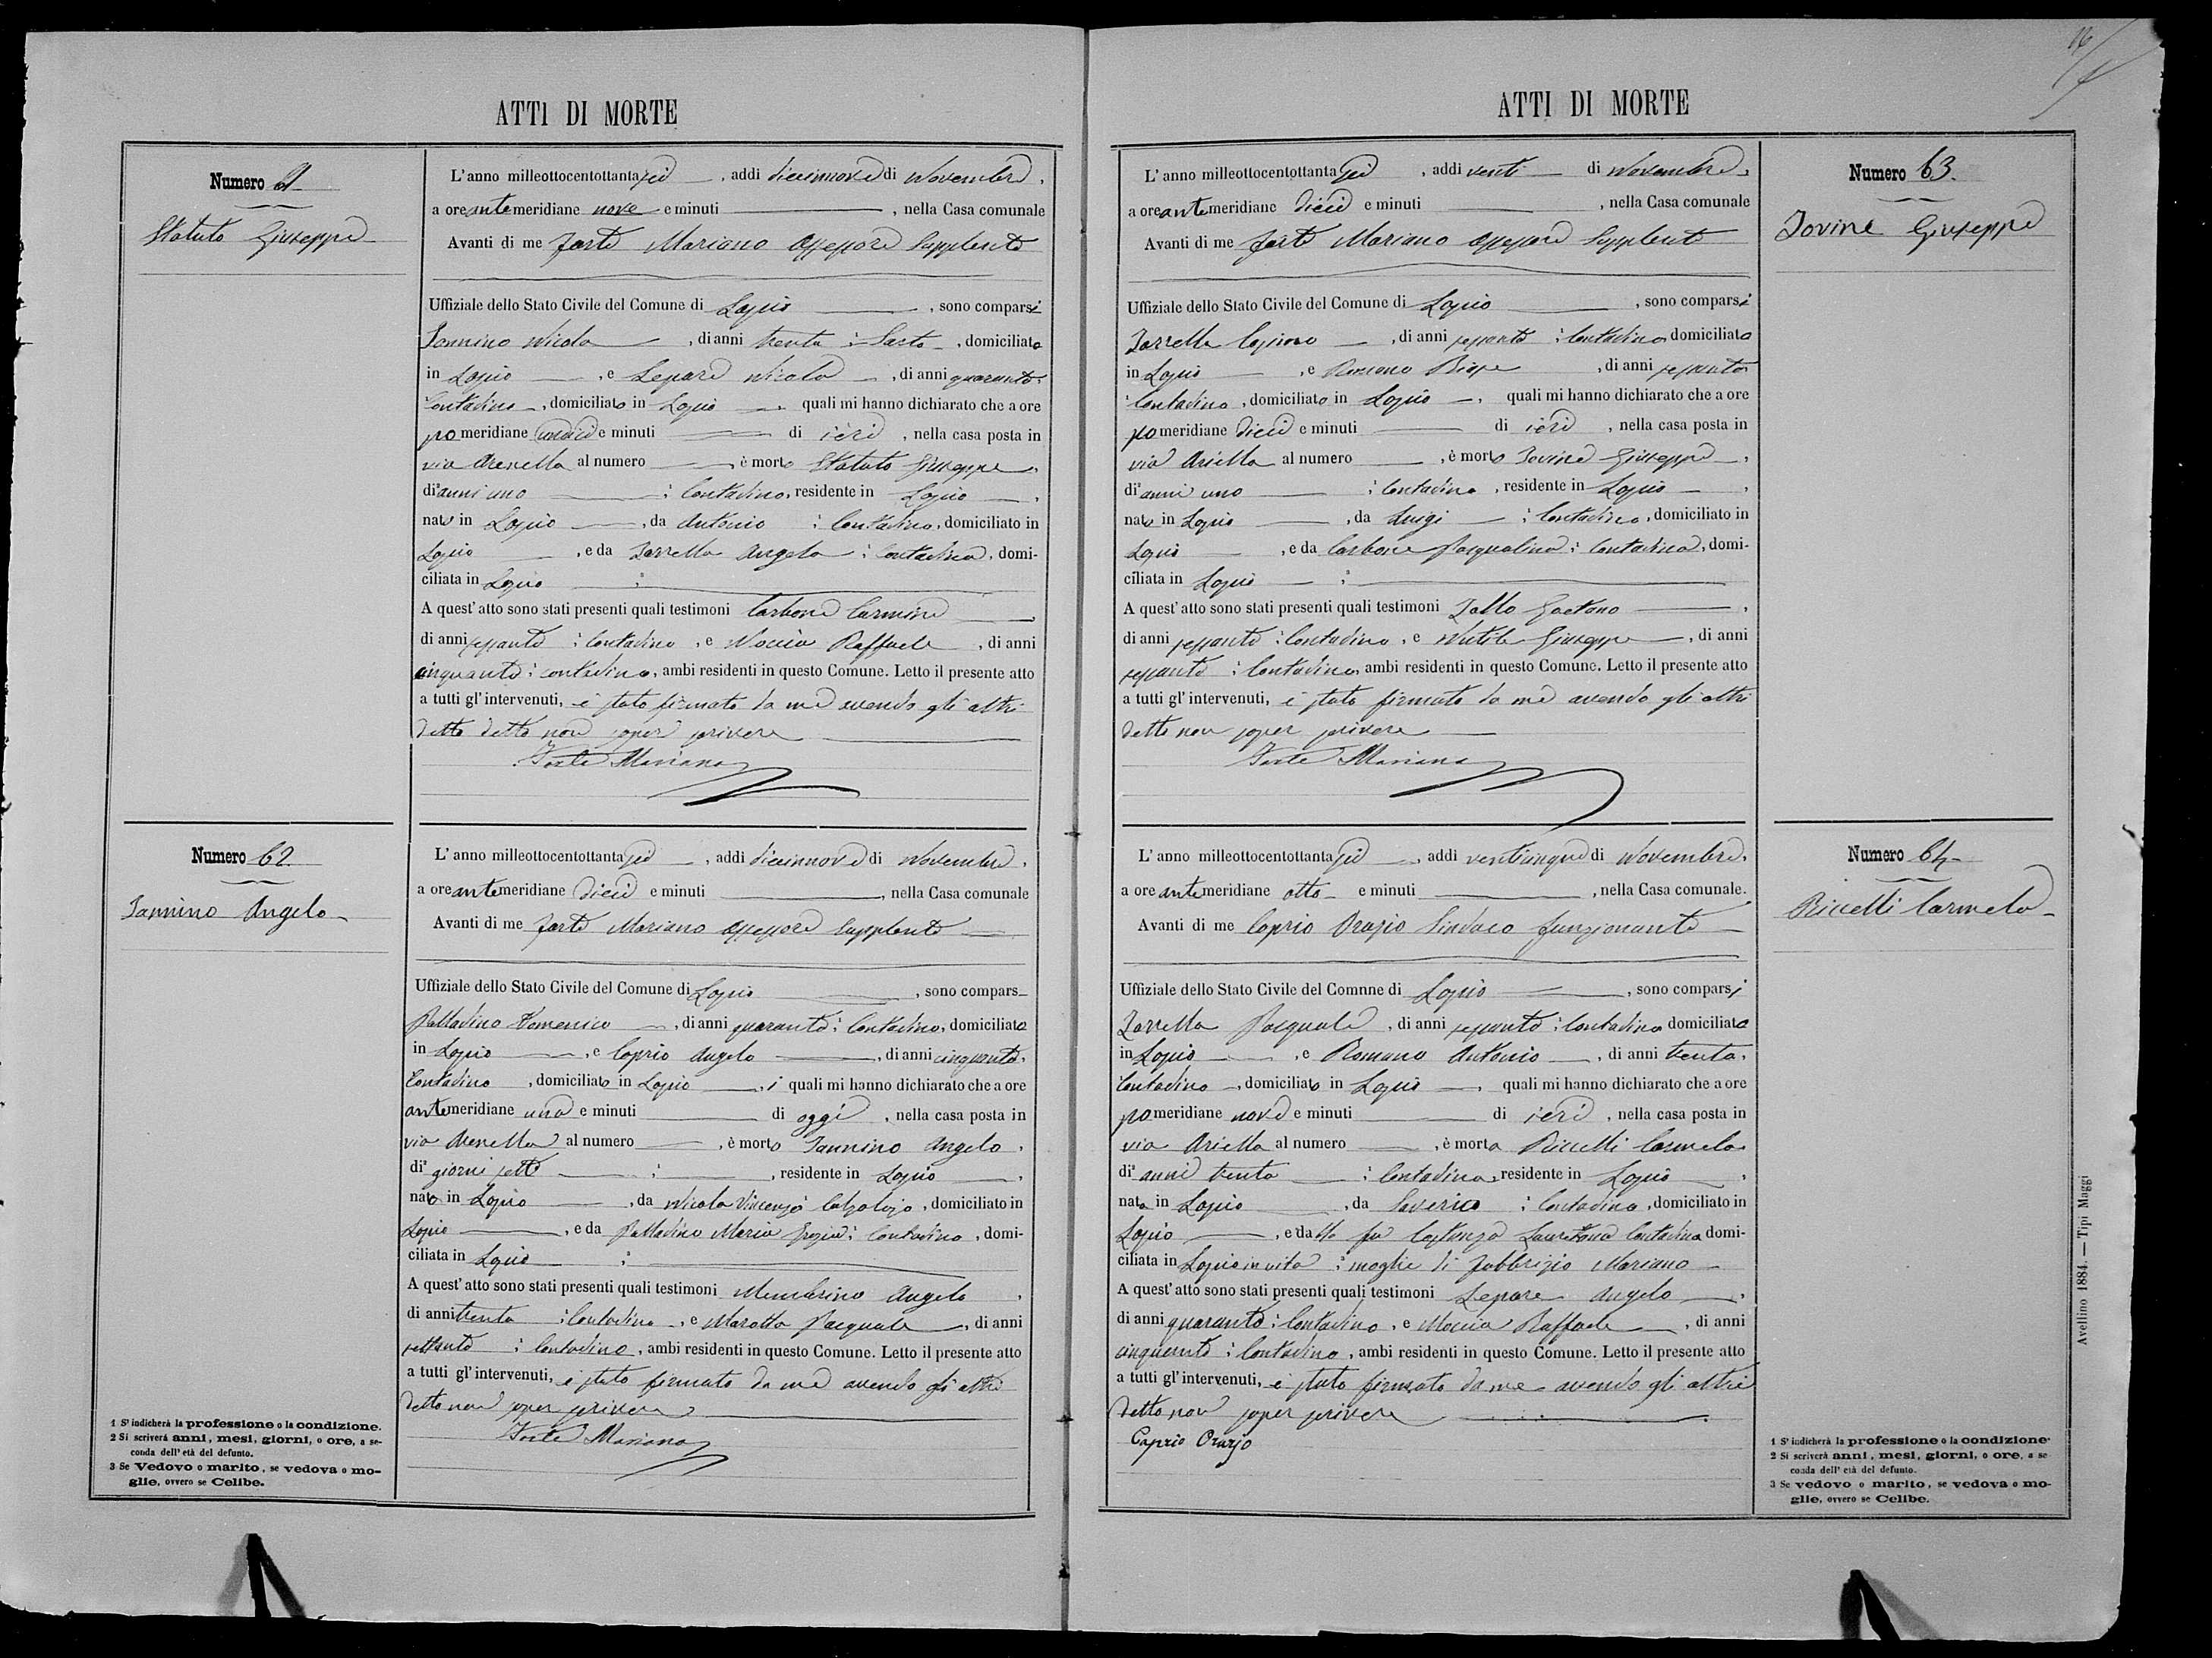 ATTI DI MORTE
Numero 61
Statuto Giuseppe
L'anno milleottocentottantasei, addi diecinnove di Novembre,
a ore antemeridiane nove e minuti , nella Casa comunale
Avanti di me Forte Mariano Assessore Supplente
Uffiziale dello Stato Civile del Comune di Lapio, sono comparsi
Iannino Nicola, di anni trenta; Sarto, domiciliato
in Lapio, e Lepore Nicola, di anni quaranta,
Contadino, domiciliato in Lapio quali mi hanno dichiarato che a ore
pomeridiane undici e minuti di ieri, nella casa posta in
via Arenella al numero , è morto Statuto Giuseppe,
di anni uno; Contadino, residente in Lapio,
nato in Lapio, da Antonio; Contadino, domiciliato in
Lapio, e da Zarrella Angela; Contadina, domi-
ciliata in Lapio;
A quest'atto sono stati presenti quali testimoni Carbone Carmine
di anni sessanta; Contadino, e Moccia Raffaele, di anni
cinquanta; contadino, ambi residenti in questo Comune. Letto il presente atto
a tutti gl'intervenuti, è stato firmato da me avendo gli altri
detto detto non saper scrivere
Forte Mariano
Numero 62
Iannino Angelo
L'anno milleottocentottantasei, addi diecinnove di Novembre,
a ore antemeridiane dieci e minuti , nella Casa comunale
Avanti di me Forte Mariano Assessore Supplente
Uffiziale dello Stato Civile del Comune di Lapio, sono compars
Palladino Domenico, di anni quaranta; Contadino, domiciliato
in Lapio, e Caprio Angelo, di anni cinquanta,
Contadino, domiciliato in Lapio, i quali mi hanno dichiarato che a ore
antemeridiane una e minuti di oggi, nella casa posta in
via Arenella al numero , è morto Iannino Angelo,
di giorni sette; , residente in Lapio,
nato in Lapio, da Nicola Vincenzo Calzolajo, domiciliato in
Lapio, e da Palladino Maria Grazia; Contadina, domi-
ciliata in Lapio;
A quest'atto sono stati presenti quali testimoni Angelo,
di anni trenta; Contadino, e Marotta Pasquale, di anni
settanta; Contadino, ambi residenti in questo Comune. Letto il presente atto
a tutti gl'intervenuti, è stato firmato da me avendo gli altri
detto non saper scrivere
Forte Mariano
1 S'indicherà la professione o la condizione.
2 Si scriverà anni, mesi, giorni, o ore, a se-
conda dell'età del defunto.
3 Se Vedovo o marito, se vedova o mo-
glie, ovvero se Celibe.
ATTI DI MORTE
Numero 63.
Iovine Giuseppe
L'anno milleottocentottantasei, addi venti di Novembre,
a ore antemeridiane dieci e minuti , nella Casa comunale
Avanti di me Forte Mariano Assessore Supplente
Uffiziale dello Stato Civile del Comune di Lapio, sono comparsi
Zarrella Cipriano, di anni sessanta; Contadino domiciliato
in Lapio, e Romano Biase, di anni sessanta
Contadino, domiciliato in Lapio, quali mi hanno dichiarato che a ore
pomeridiane dieci e minuti di ieri, nella casa posta in
via Ariella al numero , è morto Iovine Giuseppe,
di anni uno; Contadino, residente in Lapio,
nato in Lapio, da Luigi; Contadino, domiciliato in
Lapio, e da Carbone Pasqualina; Contadina, domi-
ciliata in Lapio;
A quest'atto sono stati presenti quali testimoni Gallo Gaetano,
di anni sessanta; Contadino, e Giuseppe, di anni
sessanta; Contadino, ambi residenti in questo Comune. Letto il presente atto
a tutti gl'intervenuti, è stato firmato da me avendo gli altri
detto non saper scrivere
Forte Mariano
Numero 64
Riccelli Carmela
L'anno milleottocentottantasei, addi venticinque di Novembre,
a ore antemeridiane otto e minuti , nella Casa comunale.
Avanti di me Caprio Orazio Sindaco funzionante
Uffiziale dello Stato Civile del Comnne di Lapio, sono comparsi
Zarrella Pasquale, di anni sessanta; Contadino domiciliato
in Lapio, e Romano Antonio, di anni trenta,
Contadino, domiciliato in Lapio, quali mi hanno dichiarato che a ore
pomeridiane nove e minuti di ieri, nella casa posta in
via Ariella al numero , è morta Riccelli Carmela
di anni trenta; Contadina, residente in Lapio,
nata in Lapio, da Saverio; Contadino, domiciliato in
Lapio, e dalla fu Costanza Contadina domi-
ciliata in Lapio in vita; moglie di Fabbrizio Mariano
A quest'atto sono stati presenti quali testimoni Lepore Angelo,
di anni quaranta; Contadino, e Moccia Raffaele, di anni
cinquanta; Contadino, ambi residenti in questo Comune. Letto il presente atto
a tutti gl'intervenuti, è stato firmato da me avendo gli altri
detto non saper scrivere
Caprio Orazio
1 S'indicherà la professione o la condizione
2 Si scriverà anni, mesi, giorni, o ore, a se
conda dell'età del defunto.
3 Se vedovo o marito, se vedova o mo-
glie, ovvero se Celibe.
Avellino 1884. — Tipi Maggi